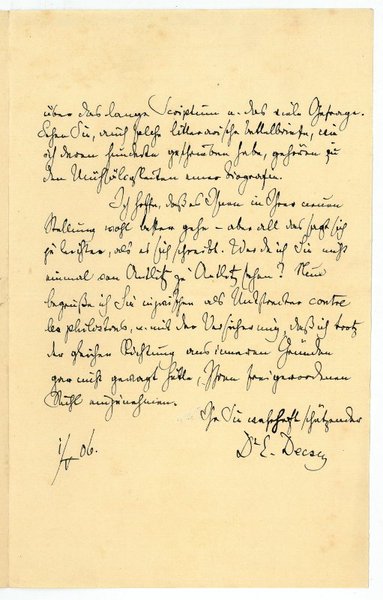 über das lange Scriptum u. das viele Gefrage.
Sehen Sie, auch solche litterarische Bettelbriefe, wie
ich deren hunderte geschrieben habe, gehören zu
den Mühseligkeiten einer Biografie.
Ich hoffe, daß es Ihnen in Ihrer neuen
Stellung wohl besser gehe – aber all das sagt sich
leichter, als es sich schreibt. Werde ich Sie nicht
einmal von Antlitz zu Antlitz sehen? Nun
begrüße ich Sie inzwischen als Mitstreiter contre
les philistins, u. mit der Versicherung, daß ich trotz
der gleichen Richtung aus inneren Gründen
gar nicht gewagt hätte, Ihren freigewordenen
Stuhl einzunehmen.
Ihr Sie wahrhaft schätzender
Dr E. Decsey
06.